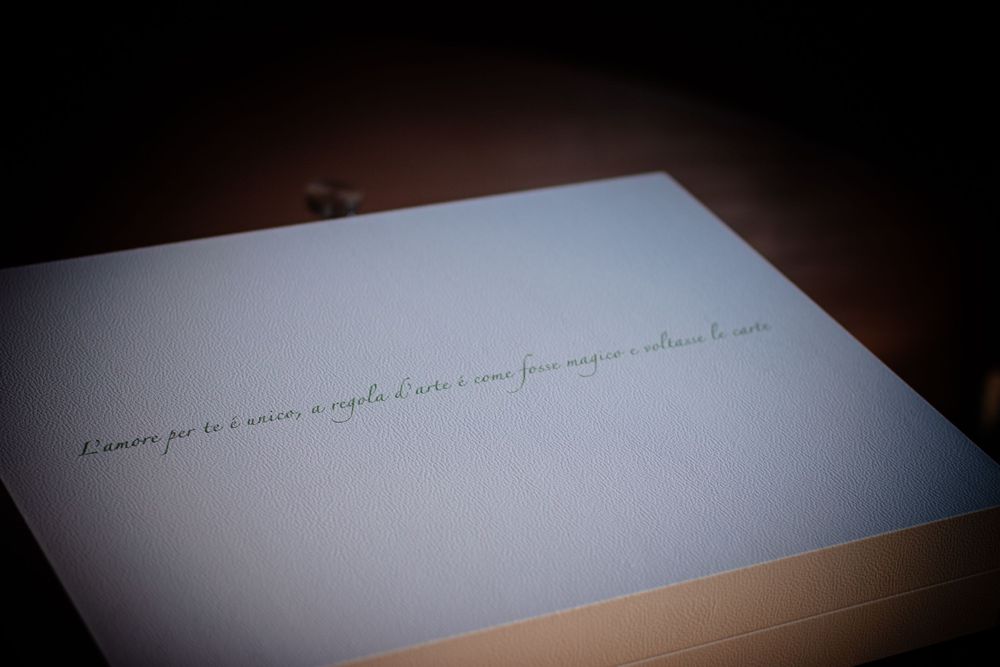 L'amore per te é unico, a regola d'arte é come fosse magico e voltasse le carte